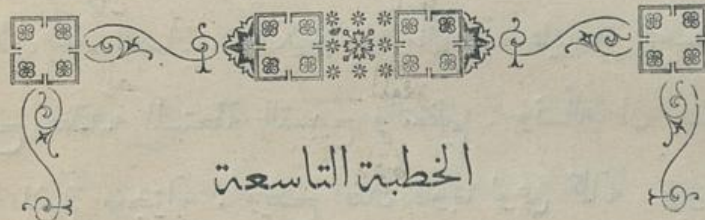 الخطبة التاسعة